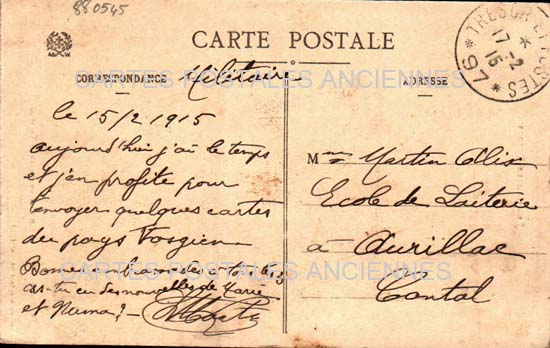 880545
CARTE POSTALE
CORRESPONDANCE Militaire
ADRESSE
TRESOR ET POSTES
17-2
15
* 97 *
CARTES POSTALES ANCIENNES
le 15/2 1915
aujourd'hui j'ai le temps
et j'en profite pour
t'envoyer quelques cartes
du pays Vosgien
as-tu eu des nouvelles de Marie
et Numa? -
Mme Martin Alix
Ecole de Laiterie
à Aurillac
Cantal
CARTES POSTALES ANCIENNES